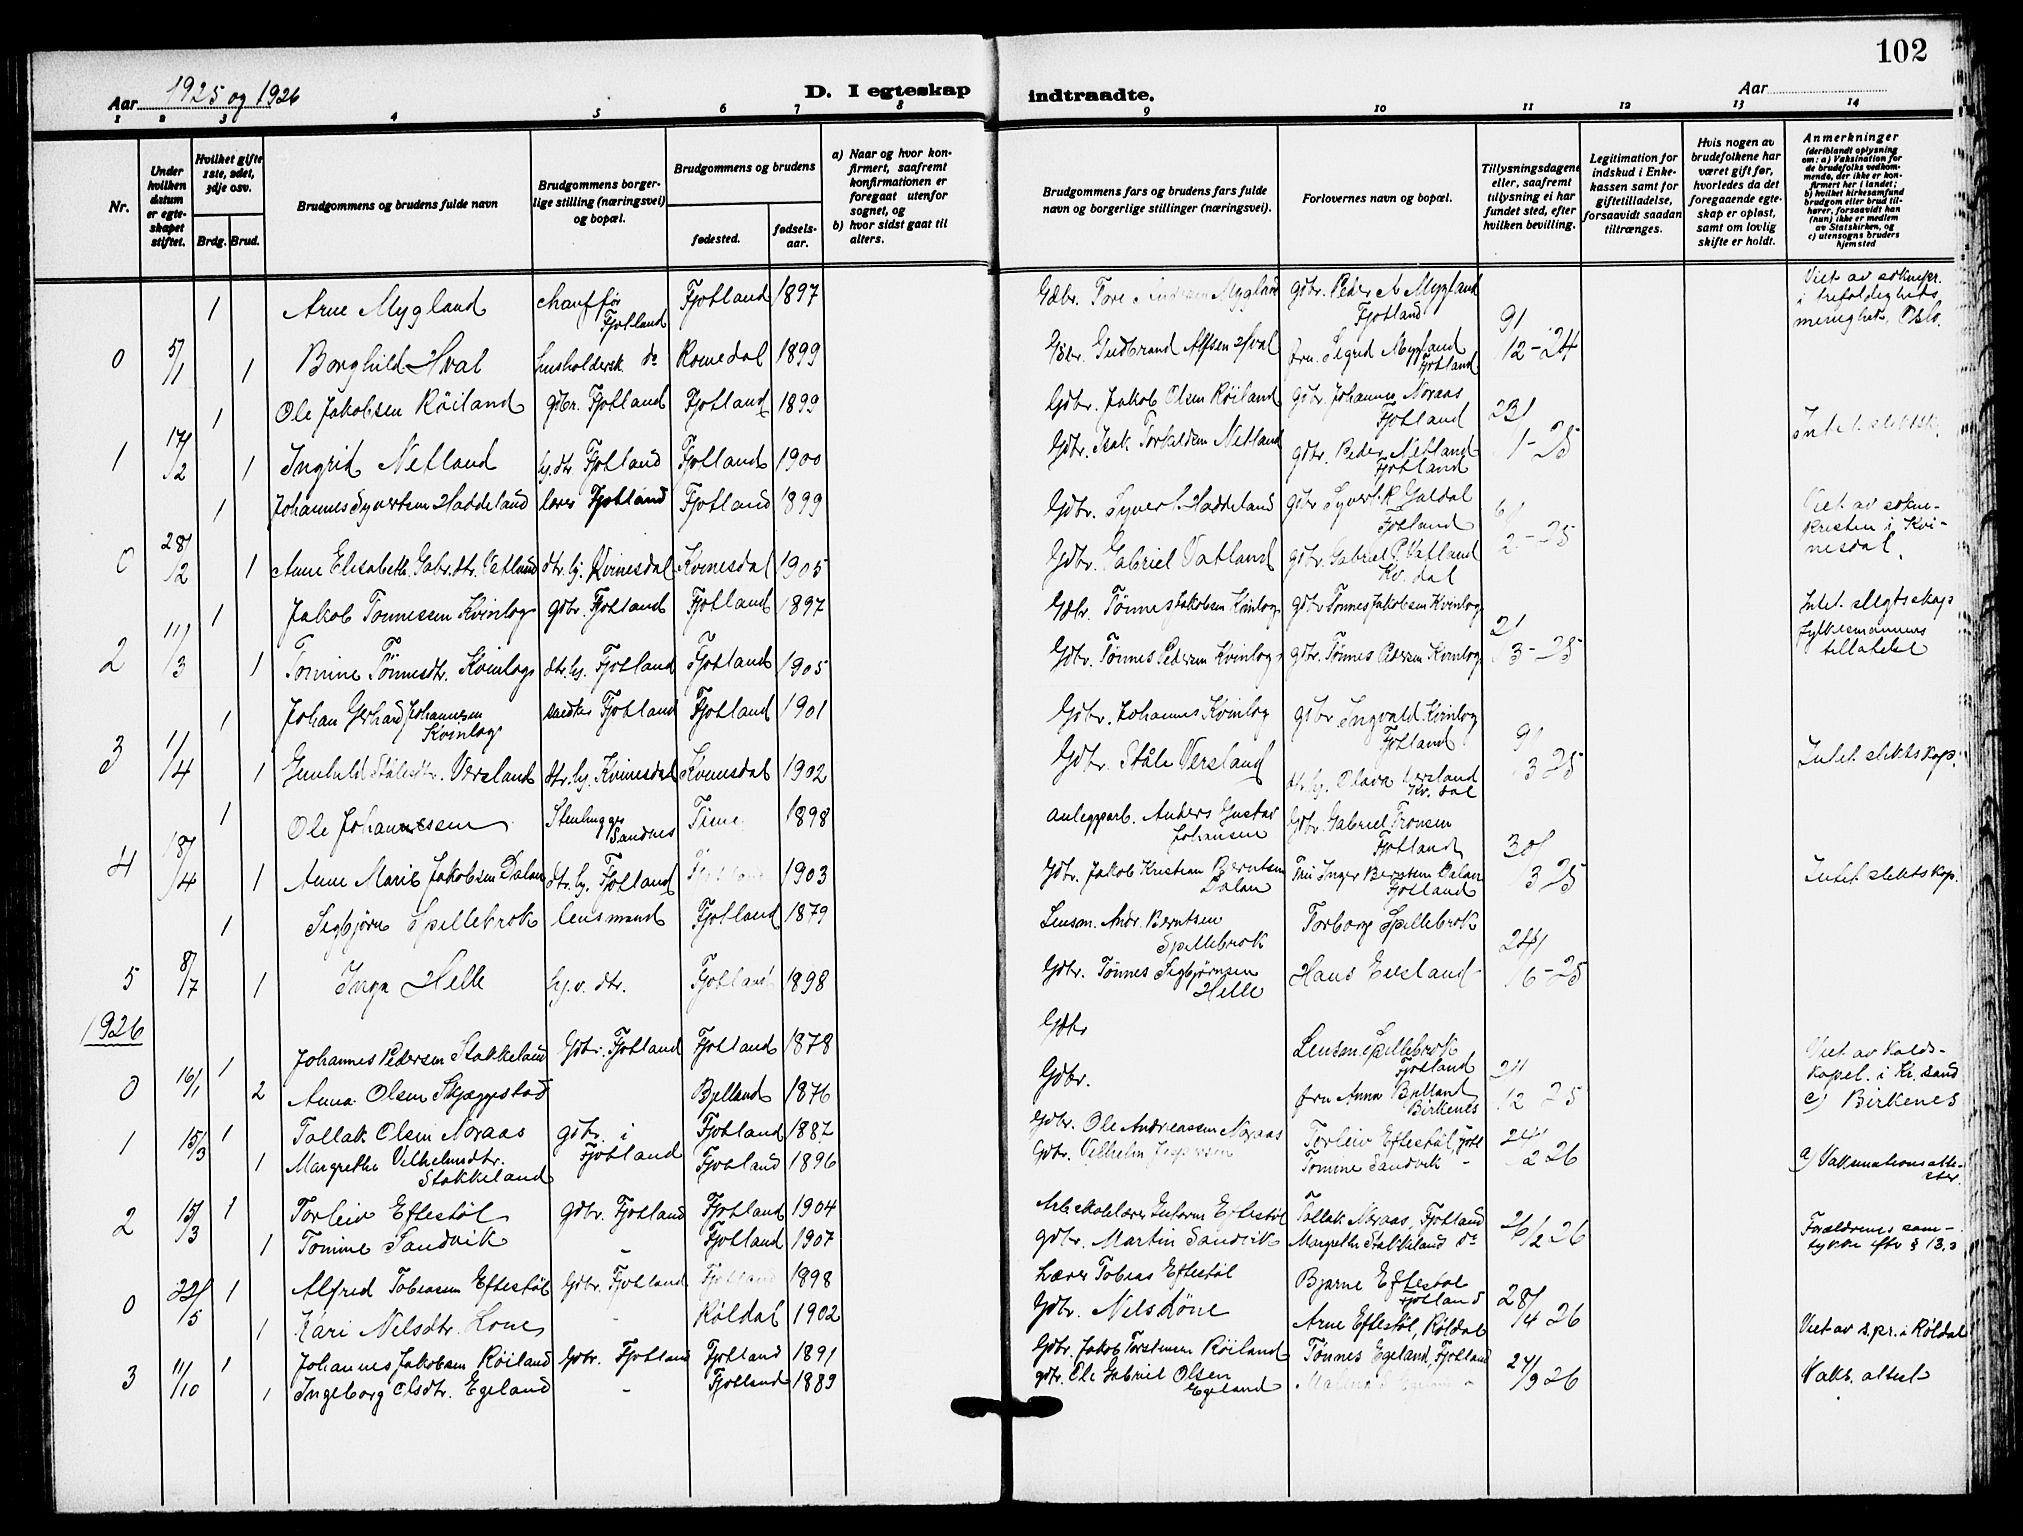 102
Aar 1925 og 1926
D. I egteskap indtraadte.
Aar
1 2 3 4 5 6 7 8 9 10 11 12 13 14
Nr.
Under hvilken datum er egteskapet stiftet.
Hvilket gifte 1ste, 2det, 3dje osv.
Brdg. Brud.
Brudgommens og brudens fulde navn
Brudgommens borgerlige stilling (næringsvei) og bopæl.
Brudgommens og brudens
fødested.
fødselsaar.
a) Naar og hvor konfirmert, saafremt konfirmationen er foregaat utenfor sognet, og
b) hvor sidst gaat til alters.
Brudgommens fars og brudens fars fulde navn og borgerlige stillinger (næringsvei).
Forlovernes navn og bopæl.
Tillysningsdagene eller, saafremt tillysning ei har fundet sted, efter hvilken bevilling.
Legitimation for indskud i Enkekassen samt for giftetilladelse, forsaavidt saadan tiltrænges.
Hvis nogen av brudefolkene har været gift før, hvorledes da det foregaaende egteskap er opløst, samt om lovlig skifte er holdt.
Anmerkninger
(deriblandt oplysning om: a) Vaksination for de brudefolks vedkommende, der ikke er konfirmert her i landet; b) hvilket kirkesamfund brudgom eller brud tilhører, forsaavidt han (hun) ikke er medlem av Statskirken, og c) utensogns bruders hjemsted
1 Arne Mygland chauffør Fjotland Fjotland 1897 Gdbr. Tore Mygland gdbr. Peder A Mygland Fjotland Viet av soknepr. i trefoldighets menighet, Oslo.
0 5/1 1 Borghild Hval husholdersk. do Romedal 1899 Gdbr. Gudbrand Alfsen Hval frn. Sigrid Mygland Fjotland 9/12-24
1 Ole Jakobsen Röiland gdbr. Fjotland Fjotland 1899 Gdbr. Jakob Olsen Röiland Gdbr. Johannes Noraas Fjotland
1 17/2 1 Ingrid Netland hj. dtr. Fjotland Fjotland 1900 Gdbr. Isak Torkeldsen Netland gdbr. Peder Netland Fjotland 23/1-25 Intet slektsk.
1 Johannes Syvertsen Haddeland lærer Fjotland Fjotland 1899 Gdbr. Syvert Haddeland gdbr Syvert P Galdal Fjotland
0 28/2 1 Anne Elisabeth Gabr.dtr. Vatland dtr. hj. Kvinesdal Kvinesdal 1905 Gdbr. Gabriel Vatland gdbr. Gabriel P Vatland Kv. dal 6/2-25 Viet av soknepresten i Kvinesdal.
1 Jakob Tönnessen Kvinlog gdbr. Fjotland Fjotland 1897 Gdbr. Tönnes Jakobsen Kvinlog gdbr Tönnes Jakobsen Kvinlog
2 11/3 1 Tomine Tönnesdtr. Kvinlog dtr. hj. Fjotland Fjotland 1905 Gdbr. Tönnes Pedersen Kvinlog gdbr. Tönnes Pedersen Kvinlog 2/3-25 Intet slegtskap fylkesmannens tillatelse
1 Johan Gerhard Johannesen Kvinlog Fjotland Fjotland 1901 Gdbr. Johannes Kvinlog gdbr Ingvald Kvinlog Fjotland
3 1/4 1 Gunhild Stålesdtr. Versland dtr. hj. Kvinesdal Kvinesdal 1902 Gdbr. Ståle Versland dtr. hj. Olava Versland Kv. dal 9/3 25 Intet slektskap.
1 Ole Johannessen Stenhugger Sandnes 1898 anleggsarb. Anders Gustav Johansen Gdbr. Gabriel Tronsen Fjotland
4 18/4 1 Anne Marie Jakobsen Dalan dtr. hj. Fjotland Fjotland 1903 Gdbr. Jakob Kristian Berntsen Dalan Fru Inger Berntsen Dalan Fjotland 30/3 25 Intet slektskap.
1 Sigbjørn Spillebrok lensmand Fjotland 1879 Lensm. Andr. Berntsen Spillebrok Torborg Spillebrok
5 8/7 1 Inga Helle hj.v. dtr. Fjotland 1898 Gdbr. Tönnes Sigbjørnsen Helle Hans Eersland 24/6-25
1926
1 Johannes Pedersen Stakkeland Gdbr. Fjotland Fjotland 1878 Gdbr Lensm. Spillebrok Fjotland
0 16/1 2 Anna Olsen Skjeggestad Bjelland 1876 Gdbr. frn Anna Bjelland Birkenes 2/12 25 Viet av kapel. i Kr. sand c) Birkenes
1 15/3 1 Tollak Olsen Noraas gdbr. i Fjotland Fjotland 1887 Gdbr. Ole Andreassen Noraas Torleiv Eftestöl, Fjotl
1 Margrethe Vilhelmsdtr. Stakkeland Fjotland 1896 Gdbr. Vilhelm Jespersen Tomine Sandvik - 24/2 26 a) Vaksinationsattester.
2 15/3 1 Torleiv Eftestöl gdbr. Fjotland Fjotland 1904 Eftestöl Tollak Noraas, Fjotland
1 Tomine Sandvik - Fjotland 1907 gdbr. Martin Sandvik Margrethe Stakkeland do 26/2 26 Forældrenes samtykke efter § 13,2
0 22/5 1 Alfred Tobiassen Eftestöl Gdbr. Fjotland Fjotland 1898 Lærer Tobias Eftestöl Bjarne Eftestöl Fjotland
1 Kari Nelsdtr. Lone - Röldal 1902 Gdbr. Nels Löne Arne Eftestöl, Röldal 28/4 26 Viet av s.pr. i Röldal
3 11/10 1 Johannes Jakobsen Röiland Gdbr. Fjotland Fjotland 1891 Gdbr. Jakob Torstensen Röiland Tönnes Egeland, Fjotland
1 Ingeborg Elsdtr. Egeland - Fjotland 1889 gdbr. Eli Gabriel Olsen Egeland 27/9 26 Vaks. attest